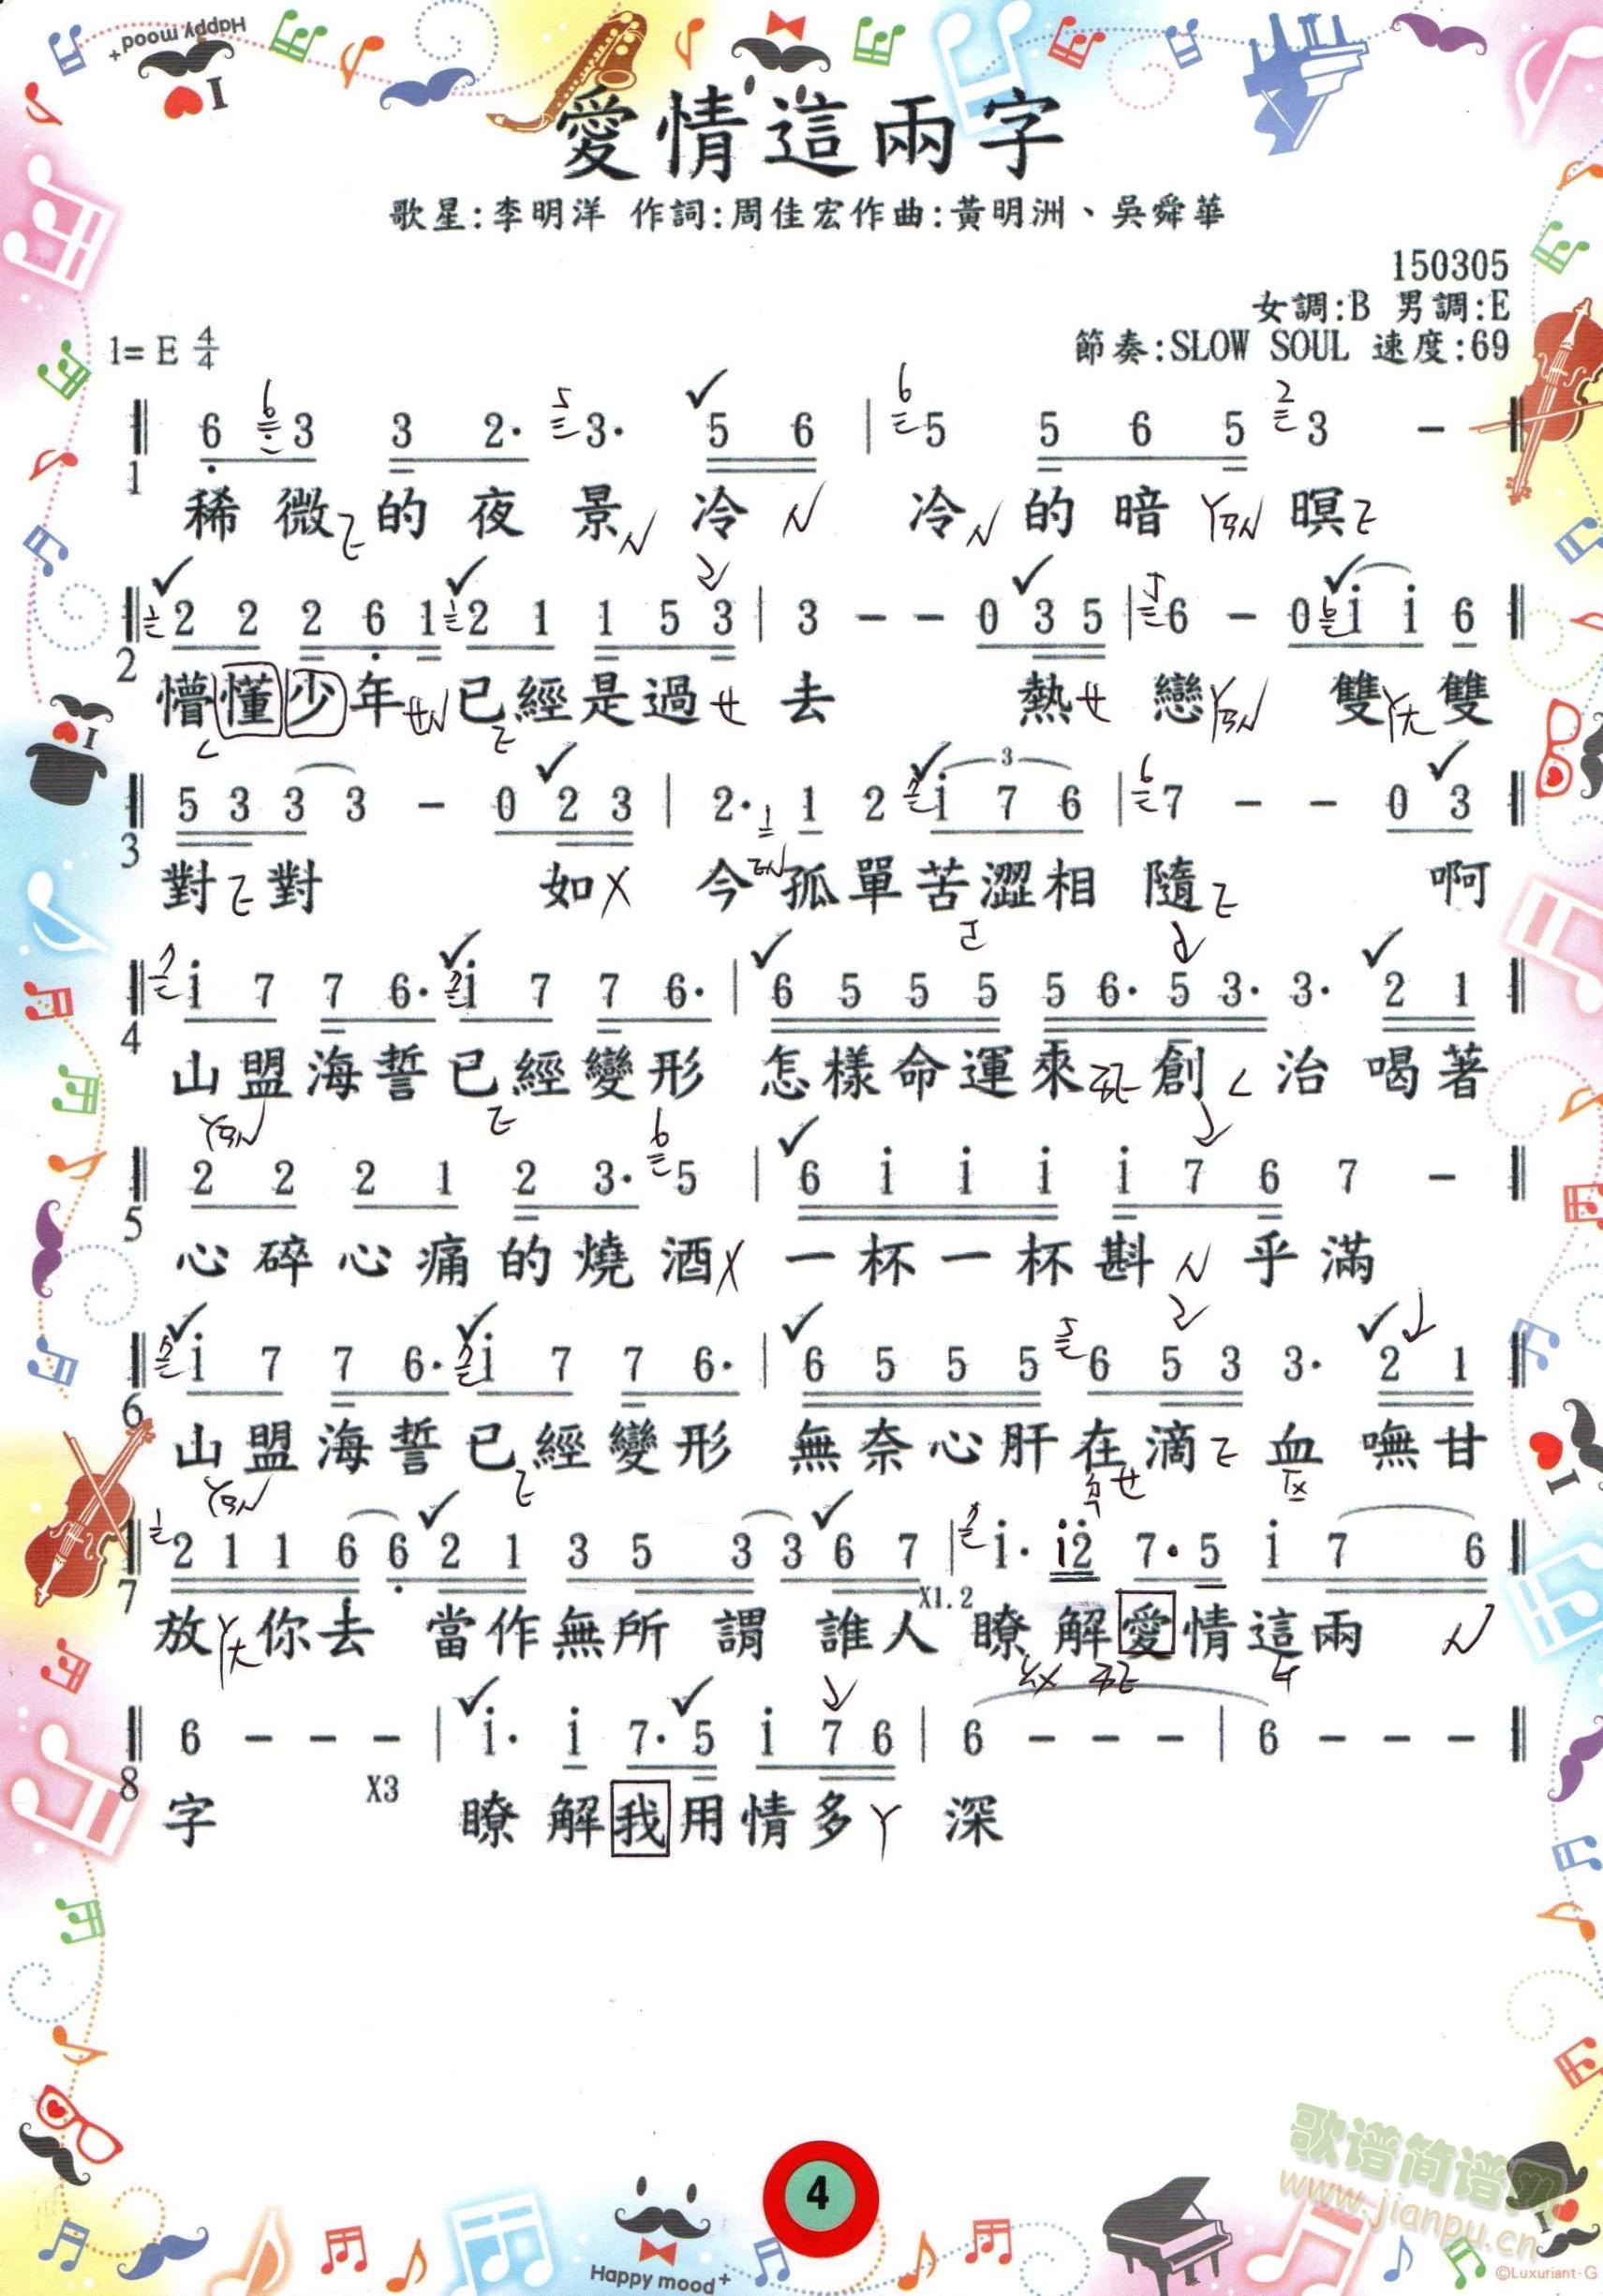 Happy mood+
I
愛情這兩字
歌星:李明洋 作詞:周佳宏作曲:黃明洲、吳舜華
150305
女調:B 男調:E
1= E 4/4
節奏:SLOW SOUL 速度:69
6 3 3 2· 3· 5 6 | 5 5 6 5 3 -
1
稀微的夜景冷 冷的暗暝
2 2 2 6 1 2 1 1 5 3 | 3 - - 0 3 5 | 6 - 0 i i 6
2
懵懂少年已經是過去 熱戀 雙雙
5 3 3 3 - 0 2 3 | 2· 1 2 i 7 6 | 7 - - 0 3
3
對對 如今孤單苦澀相隨 啊
i 7 7 6· i 7 7 6· | 6 5 5 5 5 6· 5 3· 3· 2 1
4
山盟海誓已經變形 怎樣命運來創治 喝著
2 2 2 1 2 3· 5 | 6 i i i i 7 6 7 -
5
心碎心痛的燒酒 一杯一杯斟乎滿
i 7 7 6· i 7 7 6· | 6 5 5 5 6 5 3 3· 2 1
6
山盟海誓已經變形 無奈心肝在滴血 嘸甘
2 1 1 6 6 2 1 3 5 3 3 6 7 | i· i 2 7· 5 i 7 6
7
X1.2
放你去 當作無所謂 誰人瞭解愛情這兩
6 - - - | i· i 7· 5 i 7 6 | 6 - - - | 6 - - -
8
X3
字 瞭解我用情多深
4
Happy mood+
歌谱简谱网
www.jianpu.cn
©Luxuriant-G